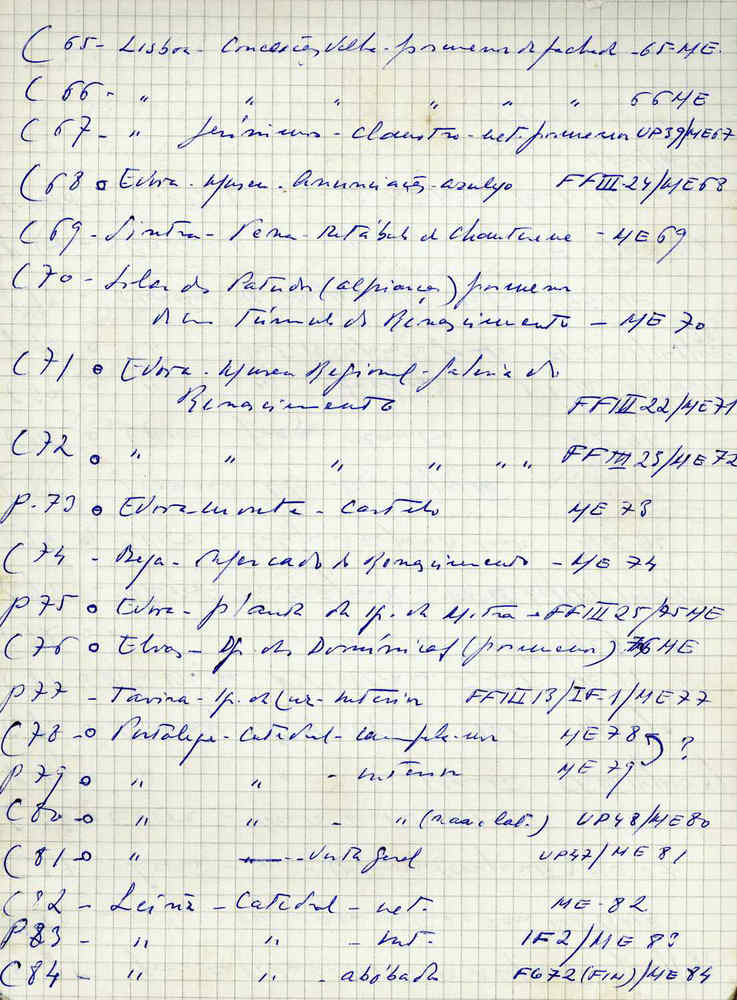 C 65 - Lisboa - Conceição Velha - pormenor da fachada - 65-ME.
C 66 - " " " " " " 66 ME
C 67 - " Jerónimos - claustro - ext. pormenor UP39/ME67
C 68 o Evora - Museu - Anunciação - azulejo FFIII-24/ME68
C 69 - Sintra - Pena - Retábulo de Chanterene - ME 69
C 70 - Solar dos Patudos (Alpiarça) pormenor
de um Túmulo do Renascimento - ME 70
C 71 o Evora - Museu Regional - Galeria do
Renascimento FFIII 22/ME71
C 72 o " " " " " " FFIII 23/ME72
P. 73 o Evora-monte - Castelo ME 73
C 74 - Beja - Mercado do Renascimento - ME 74
P 75 o Evora - planta da Ig. da Mitra - FFIII 25/75ME
C 76 o Elvas - Ig. das Domínicas (pormenor) 76 ME
P 77 - Tavira - Ig. da Luz - interior FFIII 13/IF-1/ME77
C 78 - o Portalegre - Catedral - ME 78 ?
P 79 o " " - interior ME 79
C 80 - o " " - " (nave lat.) UP48/ME80
C 81 - o " - Vista geral UP47/ME 81
C 82 - Leiria - Catedral - ext. ME-82
P 83 - " " - int. IF2/ME 83
C 84 - " " - abóbada F672 (FIN)/ME 84